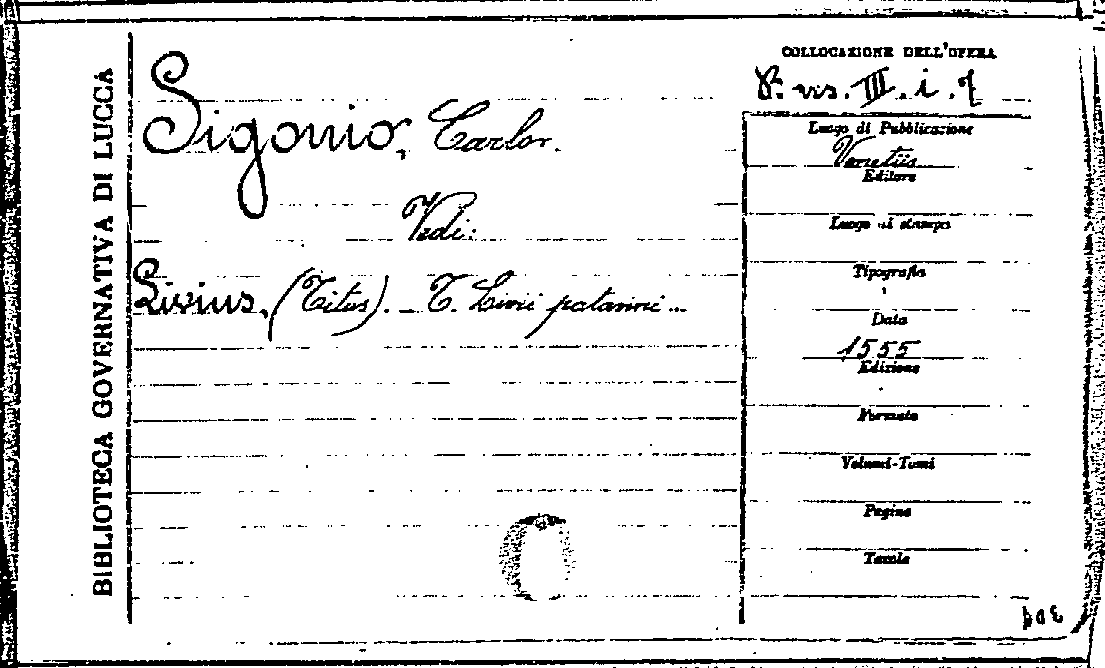 BIBLIOTECA GOVERNATIVA DI LUCCA
Sigonio, Carlo.
Vedi:
Livius, (Titus). - T. Livii patavini ...
COLLOCAZIONE DELL'OPERA
Luogo di Pubblicazione
Venetiis
Editore
Luogo di stampa
Tipografia
Data
1555
Edizione
Formato
Volumi-Tomi
Pagine
Tavole